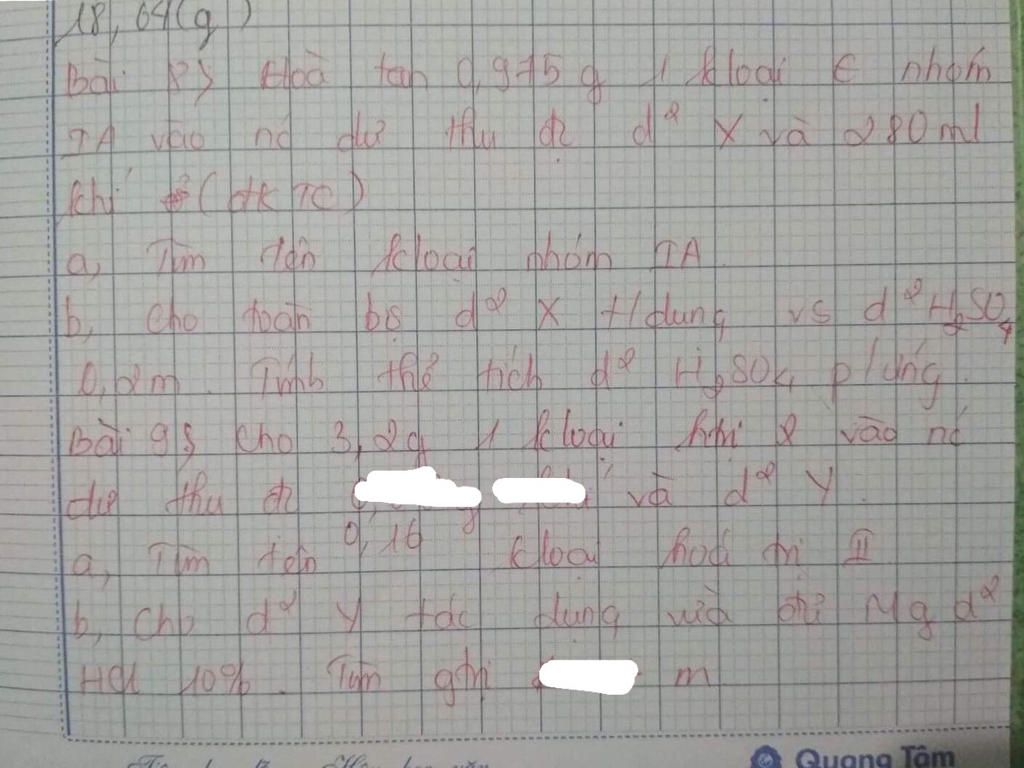 18,64(g)
Bài 8} Hoà tan 0,975g 1 kloại € nhóm
IA vào nc dư thu đc d² X và 280ml
khí (đkTC)
a, Tìm tên kloại nhóm IA
b, cho toàn bộ d² X t/dụng vs d² H₂SO₄
0,2m. Tính thể tích d² H₂SO₄ p/ứng.
Bài 9} Cho 3,2g 1 kloại htrị 2 vào nc
dư thu đc và d² Y.
0,16
a, Tìm tên kloại hoá trị II
b, Cho d² Y tác dụng vừa đủ Mg d²
HCl 10%. Tìm gtrị m
Quang Tâm